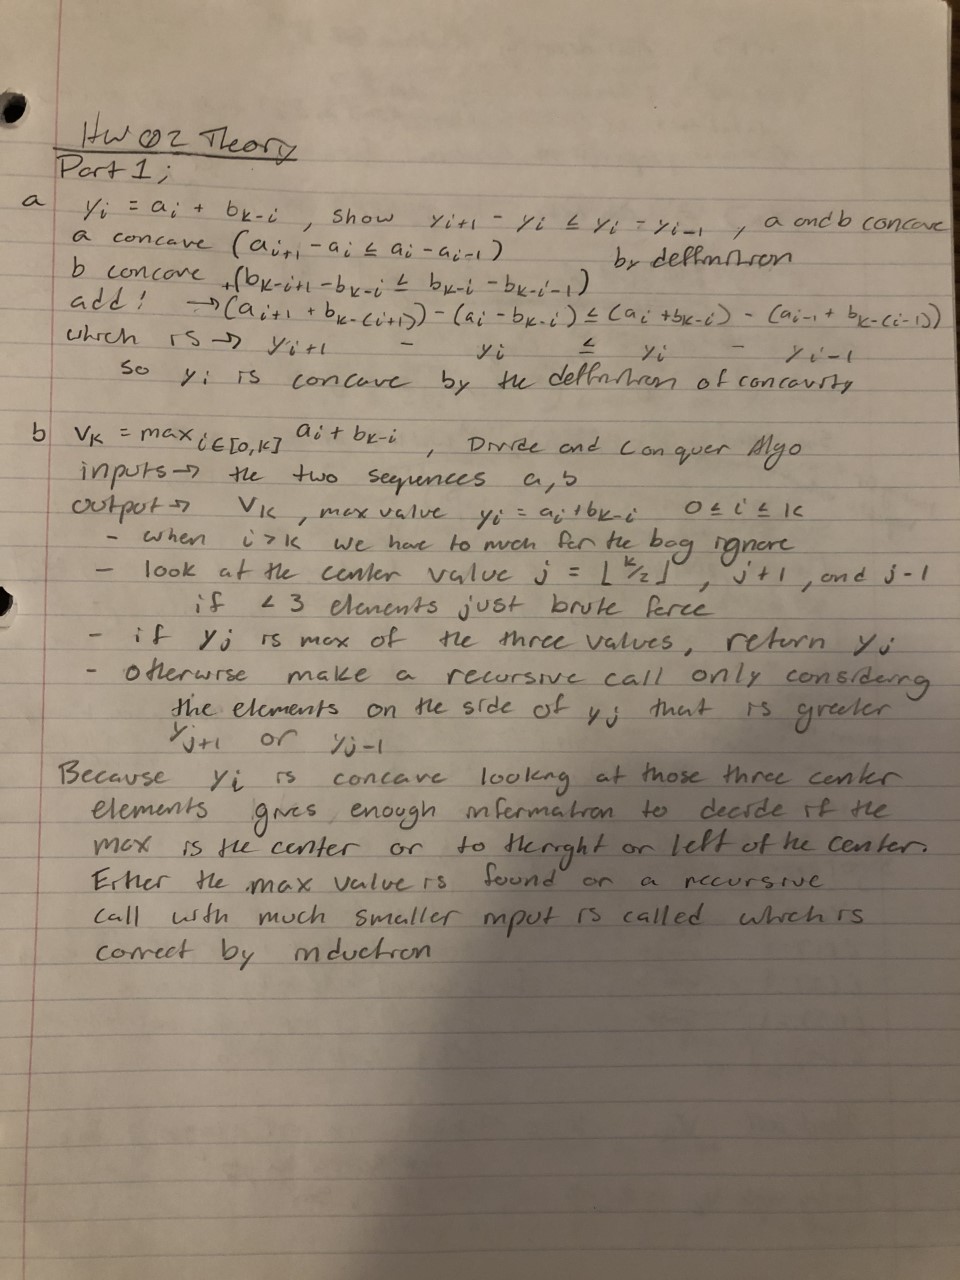 HW 02 Theory
Part 1;
a yi = ai + bk-i , show yi+1 - yi ≤ yi - yi-1 , a and b concave
a concave (ai+1 - ai ≤ ai - ai-1) by deffinition
b concave +(bk-i+1 - bk-i ≤ bk-i - bk-i-1)
add! → (ai+1 + bk-(i+1)) - (ai - bk-i) ≤ (ai + bk-i) - (ai-1 + bk-(i-1))
which is → yi+1 - yi ≤ yi - yi-1
so yi is concave by the deffinition of concavity
b Vk = max i∈[0,k] ai + bk-i , Divide and Conquer Algo
inputs → the two sequences a,b
output → Vk , max value yi = ai + bk-i 0 ≤ i ≤ k
- when i > k we have to much for the bag ignore
- look at the center value j = ⌊k/2⌋ , j+1 , and j-1
if < 3 elements just brute force
- if yj is max of the three values, return yj
- otherwise make a recursive call only considering
the elements on the side of yj that is greater
yj+1 or yj-1
Because yi is concave looking at those three center
elements gives enough information to decide if the
max is the center or to the right or left of the center.
Either the max value is found or a recursive
call with much smaller input is called which is
correct by induction